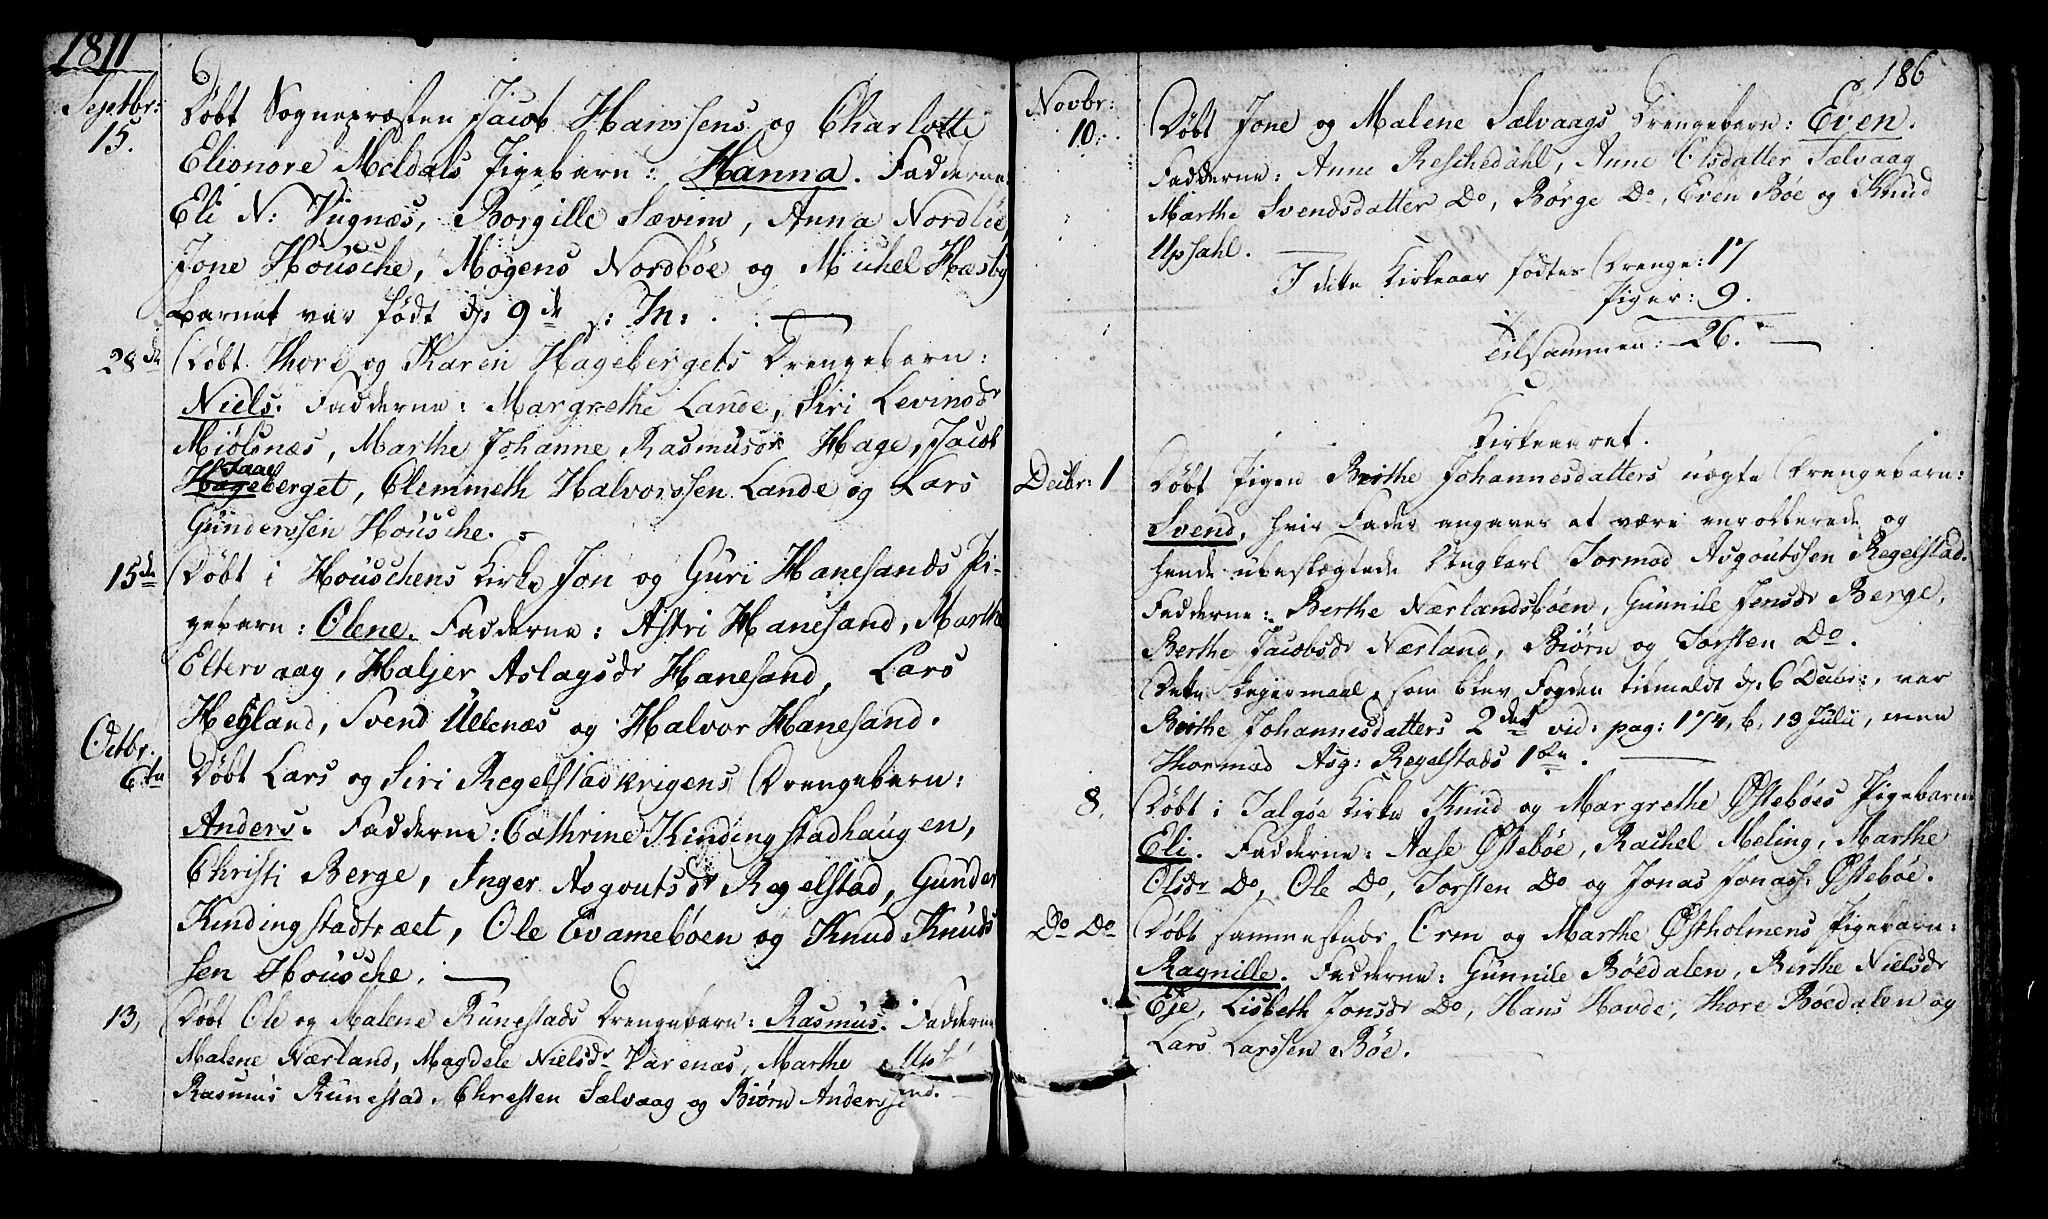 1811
Septbr:
15. Døbt Sognepræsten Jacob Hanssens og Charlotte
Elionore Meldals Pigebarn: Hanna. Fadderne
Eli N: Vignæs, Borgille Sævim, Anna Nordbøe
Jone Housche, Mogens Nordbøe og Michel Hæsby
Barnet var født d: 9de s: M:.
28de Døbt Thore og Karen Hagebergets Drengebarn:
Niels. Fadderne: Margrethe Lande, Siri Levinsdr
Miölsnæs, Marthe Johanne Rasmusdr Hage, Jacob
Haaeberget, Clemmeth Halvorssen Lande og Lars
Gunderssen Housche.
15de Døbt i Houschens Kirke Jon og Guri Hanesands Pi-
gebarn: Olene. Fadderne: Astri Hanesand, Marthe
Eltervaag, Haljer Aslagsdr Hanesand, Lars
Heyland, Svend Ullenæs og Halvor Hanesand.
Octbr.
6te Døbt Lars og Siri Regelstadkrigens Drengebarn:
Anders. Fadderne: Cathrine Kindingstadhaugen,
Christi Berge, Inger Asgoutsdr Regelstad, Gunder
Kindingstadtræet, Ole Qvamebøen og Knud Knuds
sen Housche.
13, Døbt Ole og Malene Runestads Drengebarn: Rasmus. Fadderne
Malene Nærland, Magdele Nielsdr Varenæs, Marthe Ups
Rasmus Runestad. Chresten Sælvaag og Biørn Anderss
186
Novbr:
10. Døbt Jone og Malene Sælvaags Drengebarn: Even.
Fadderne: Anne Reschedahl, Anne Olsdatter Sælvaag
Marthe Svendsdatter Do, Børge Do, Even Bøe og Knud
Upsahl.
I dette Kirkeaar fødte Drenge: 17
Piger: 9.
Tilsammen: 26.
Kirkeaaret.
Decbr: 1 Døbt Pigen Berthe Johannesdatters uægte Drengebarn:
Svend, hvis Fader angaves at være enrollerede og
hende ubeslægtede Ungkarl Tormod Asgoutssen Regelstad.
Fadderne: Berthe Nærlandsbøen, Gunnile Jensdr Berge,
Berthe Jacobsdr Nærland, Biørn og Torsten Do.
Dette Leiermaal, som blev Fogden tilmeldt d: 6 Decbr:, var
Berthe Johannesdatters 2det vid: pag: 174, b, 13 Julii, men
Thormod Asg: Regelstads 1ste.
8. Døbt i Talgøe Kirke Knud og Margrethe Østebøes Pigebarn
Eli. Fadderne: Aase Østebøe, Rachel Meling, Marthe
Olsdr Do, Ole Do, Torsten Do og Jonas Jonass: Østebøe.
Do Do Døbt sammesteds Orm og Marthe Østholmens Pigebarn:
Ragnille. Fadderne: Gunnile Bøedalen, Berthe Nielsdr
Eje, Lisbeth Jonsdr Do, Hans Hovde, Thore Bøedalen og
Lars Larssen Bøe.